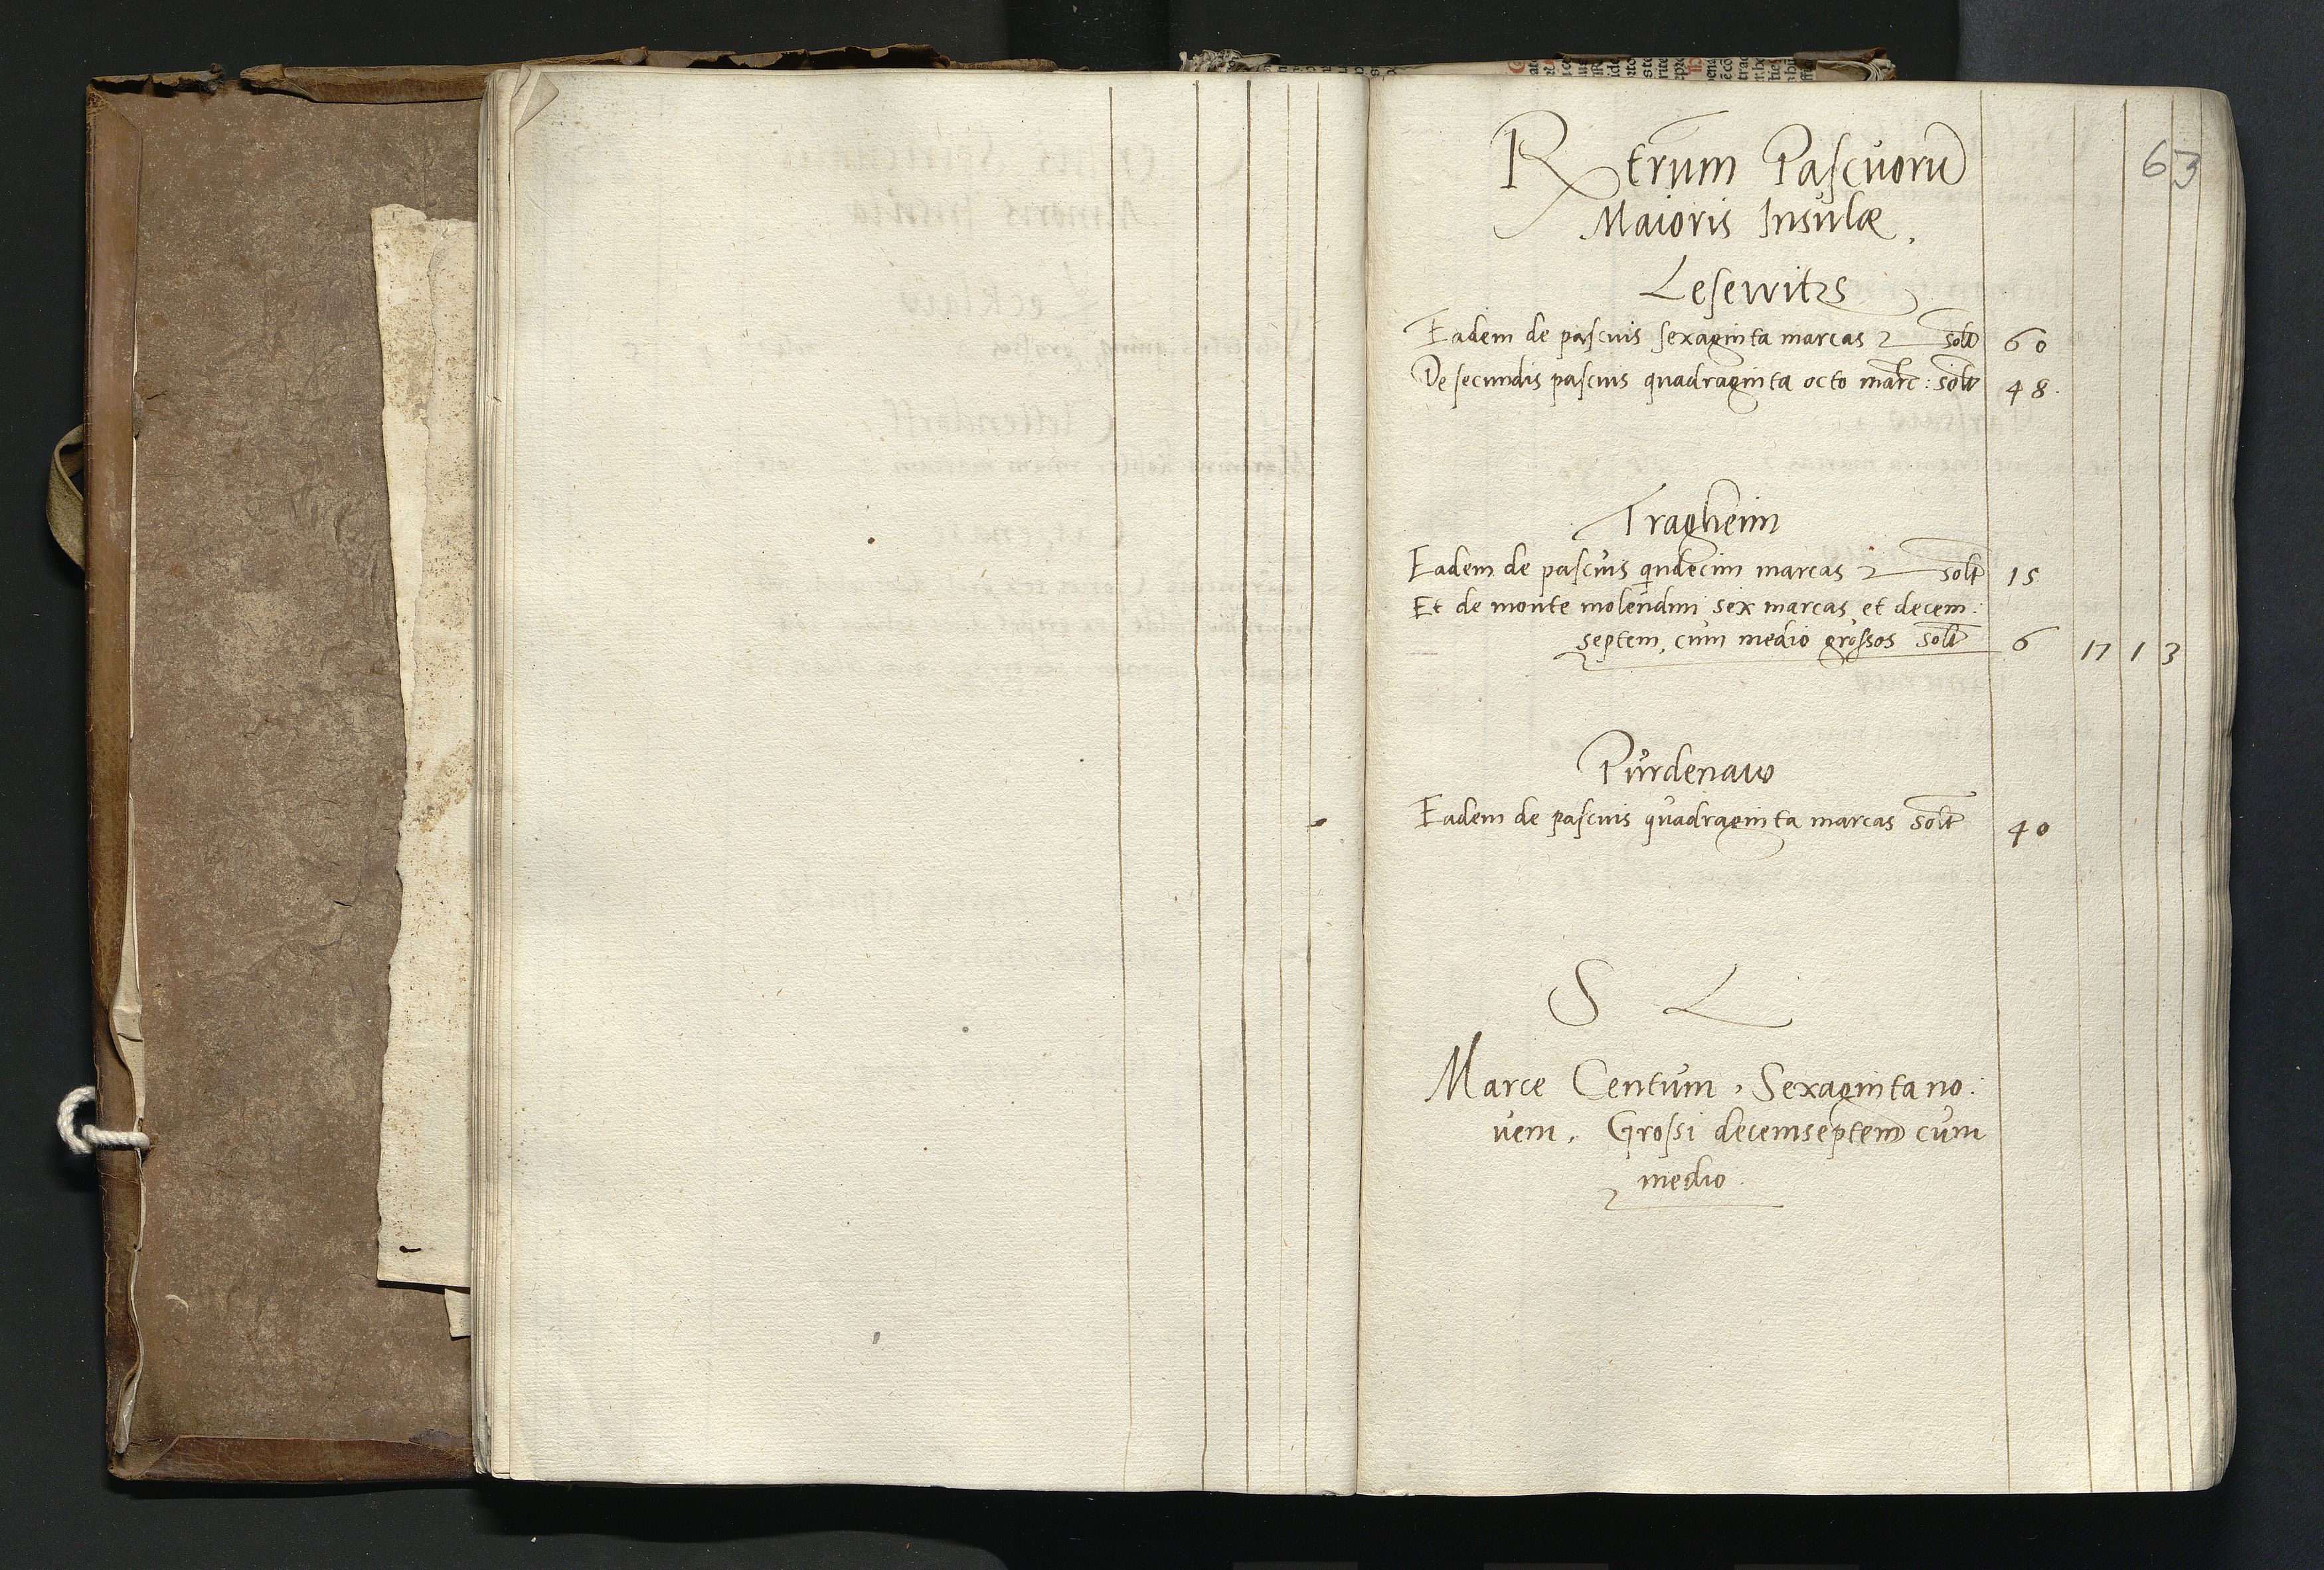 63
Rtrum Pascuorũ
Maioris Insulæ.
Lesewitzs
Eadem de pascuis sexaginta marcas solt 60
De secundis pascuis quadraginta octo marc: solt 48.
Tragheim
Eadem de pascuis quindecim marcas solt 15
Et de monte molendini sex marcas et decem:
septem, cum medio grossos solt 6 17 1 3
Purdenaw
Eadem de pascuis quadraginta marcas solt 40
S L
Marce Centum, Sexaginta no:
uem, Grossi decemseptem cum
medio.